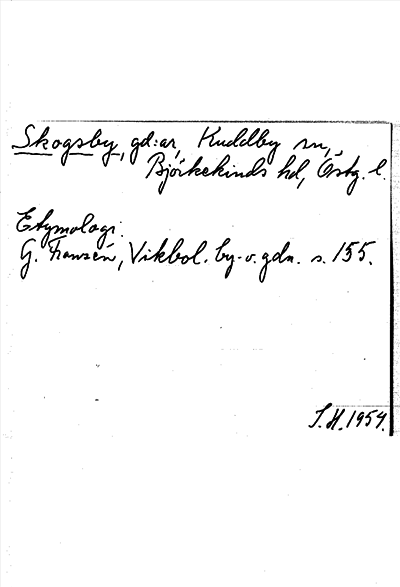 Skogsby, gd:ar, Kuddby sn,
Björkekinds hd, Östg. l.
Etymologi.
G. Franzén, Vikbol. by- o. gdn. s. 155.
S.H. 1954.